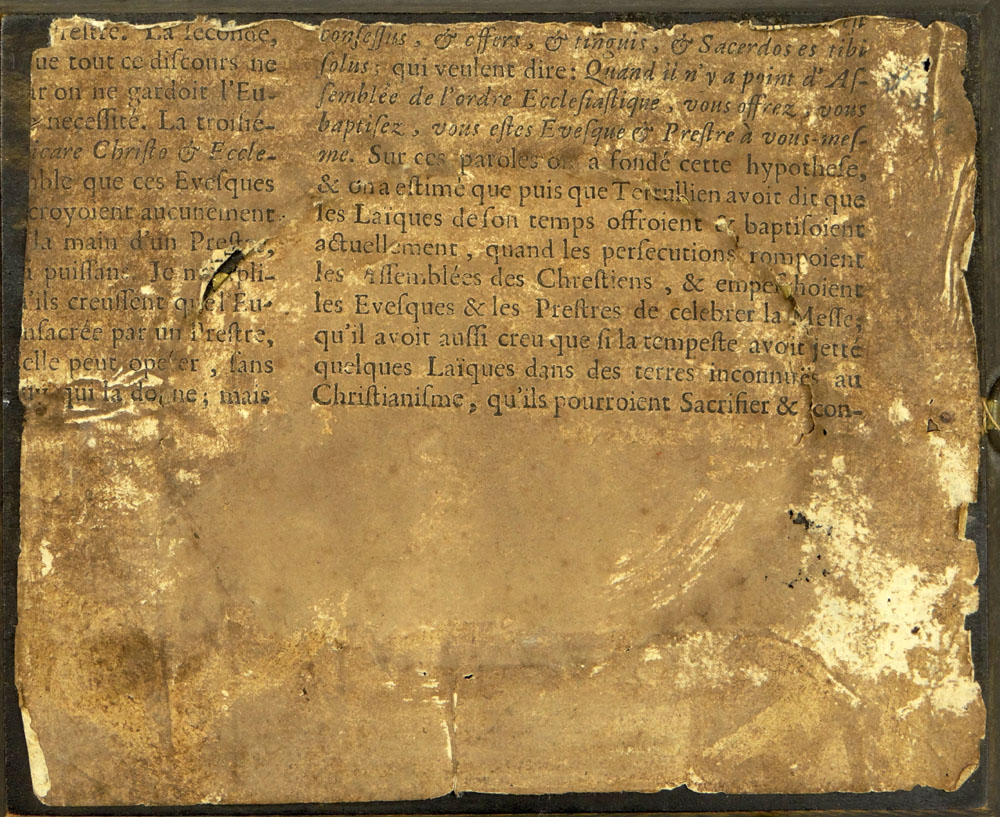 restre. La seconde,
ue tout ce discours ne
ar on ne gardoit l'Eu-
necessité. La troisié-
icare Christo & Eccle-
ble que ces Evesques
croyoient aucunement
la main d'un Prestre,
puissan
ils creussent que l'Eu-
nsacrée par un Prestre,
elle peut operer, sans
qui la donne; mais
consessus, & offers, & tinguis, & Sacerdos es tibi
solus; qui veulent dire: Quand il n'y a point d'As-
semblée de l'ordre Ecclesiastique, vous offrez, vous
baptisez, vous estes Evesque & Prestre à vous-mes-
me. Sur ces paroles on a fondé cette hypothese,
& on a estimé que puis que Tertullien avoit dit que
les Laïques de son temps offroient & baptisoient
actuellement, quand les persecutions rompoient
les Assemblées des Chrestiens, & empeschoient
les Evesques & les Prestres de celebrer la Messe;
qu'il avoit aussi creu que si la tempeste avoit jetté
quelques Laïques dans des terres inconnuës au
Christianisme, qu'ils pourroient Sacrifier & con-